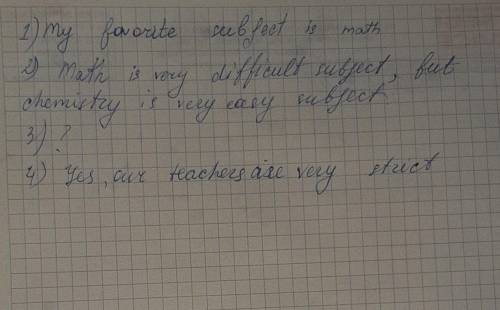 1) My favorite subject is math
2) Math is very difficult subject, but
chemistry is very easy subject
3) ?
4) Yes, our teachers are very strict